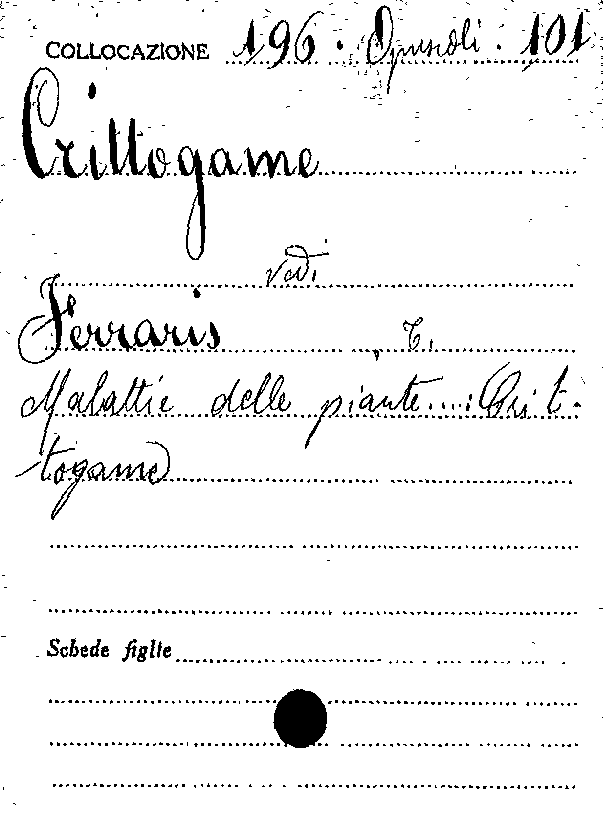 COLLOCAZIONE 196. Opuscoli. 101
Crittogame
vedi
Ferraris, T.
Malattie delle piante...: Crit-
togame
Schede figlie